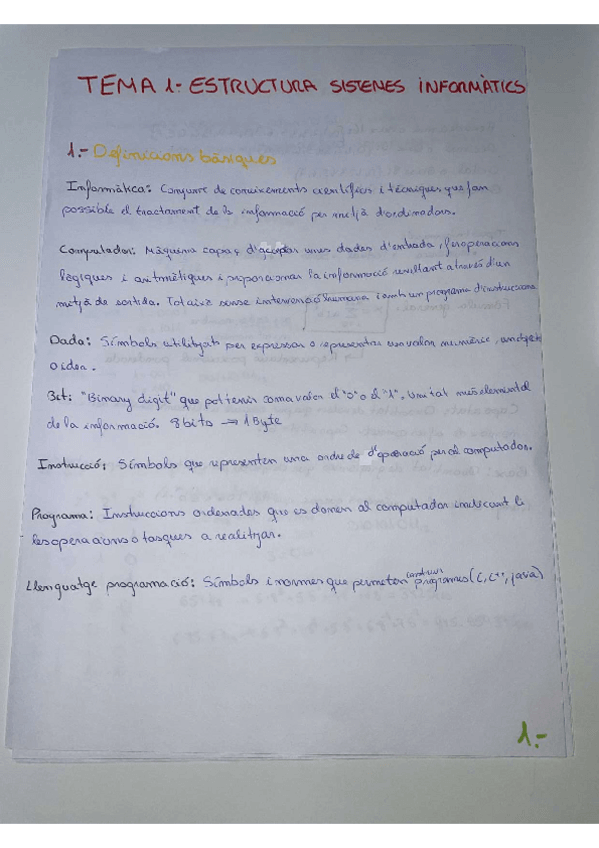 TEMA 1- ESTRUCTURA SISTEMES INFORMÀTICS
1.- Definicions bàsiques
Informàtica: Conjunt de coneixements científics i tècniques que fan
possible el tractament de la informació per mitjà d'ordinadors.
Computador: Màquina capaç d'acceptar unes dades d'entrada, fer operacions
lògiques i aritmètiques i proporcionar la informació resultant a través d'un
mitjà de sortida. Tot això sense intervenció humana i amb un programa d'instruccions
Dada: Símbols utilitzats per expressar o representar un valor numèric, un objecte
o idea.
Bit: "Binary digit" que pot tenir com a valor el "0" o el "1". Unitat més elemental
de la informació. 8 bits → 1 Byte
Instrucció: Símbols que representen una ordre de d'operació per al computador.
Programa: Instruccions ordenades que es donen al computador indicant li
les operacions o tasques a realitzar.
Llenguatge programació: Símbols i normes que permeten construir programes (C, C++, java)
1.-